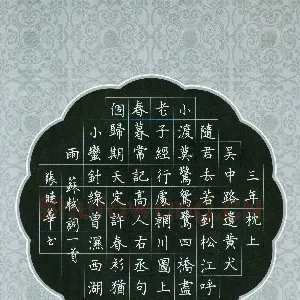 三年枕上
吴中路遣黄犬
隨君去若到松江呼
小渡莫驚鴛鷺四橋盡
老子經行處輞川圖上
春暮常記高人右丞
個歸期天定許春衫猶
小蠻針線曾濕西湖
雨
蘇軾詞一首
張華书